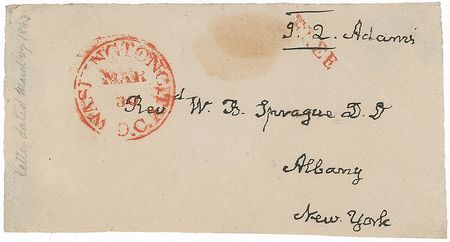 J. Q. Adams
FREE
WASHINGTON CITY D.C.
MAR
30
Revd W. B. Sprague D. D
Albany
New York
letter dated March 29 1843